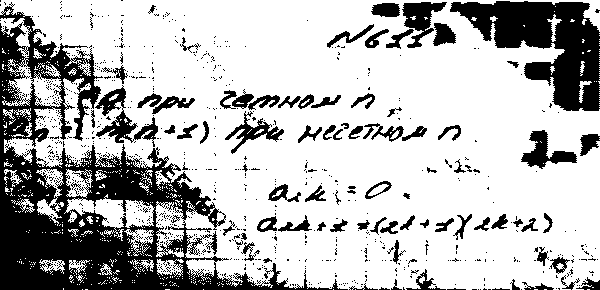 №611
0 при четном n,
aₙ = { n(n+1) при нечетном n
a₂ₖ = 0.
a₂ₖ₊₁ = (2k+1)(2k+2)